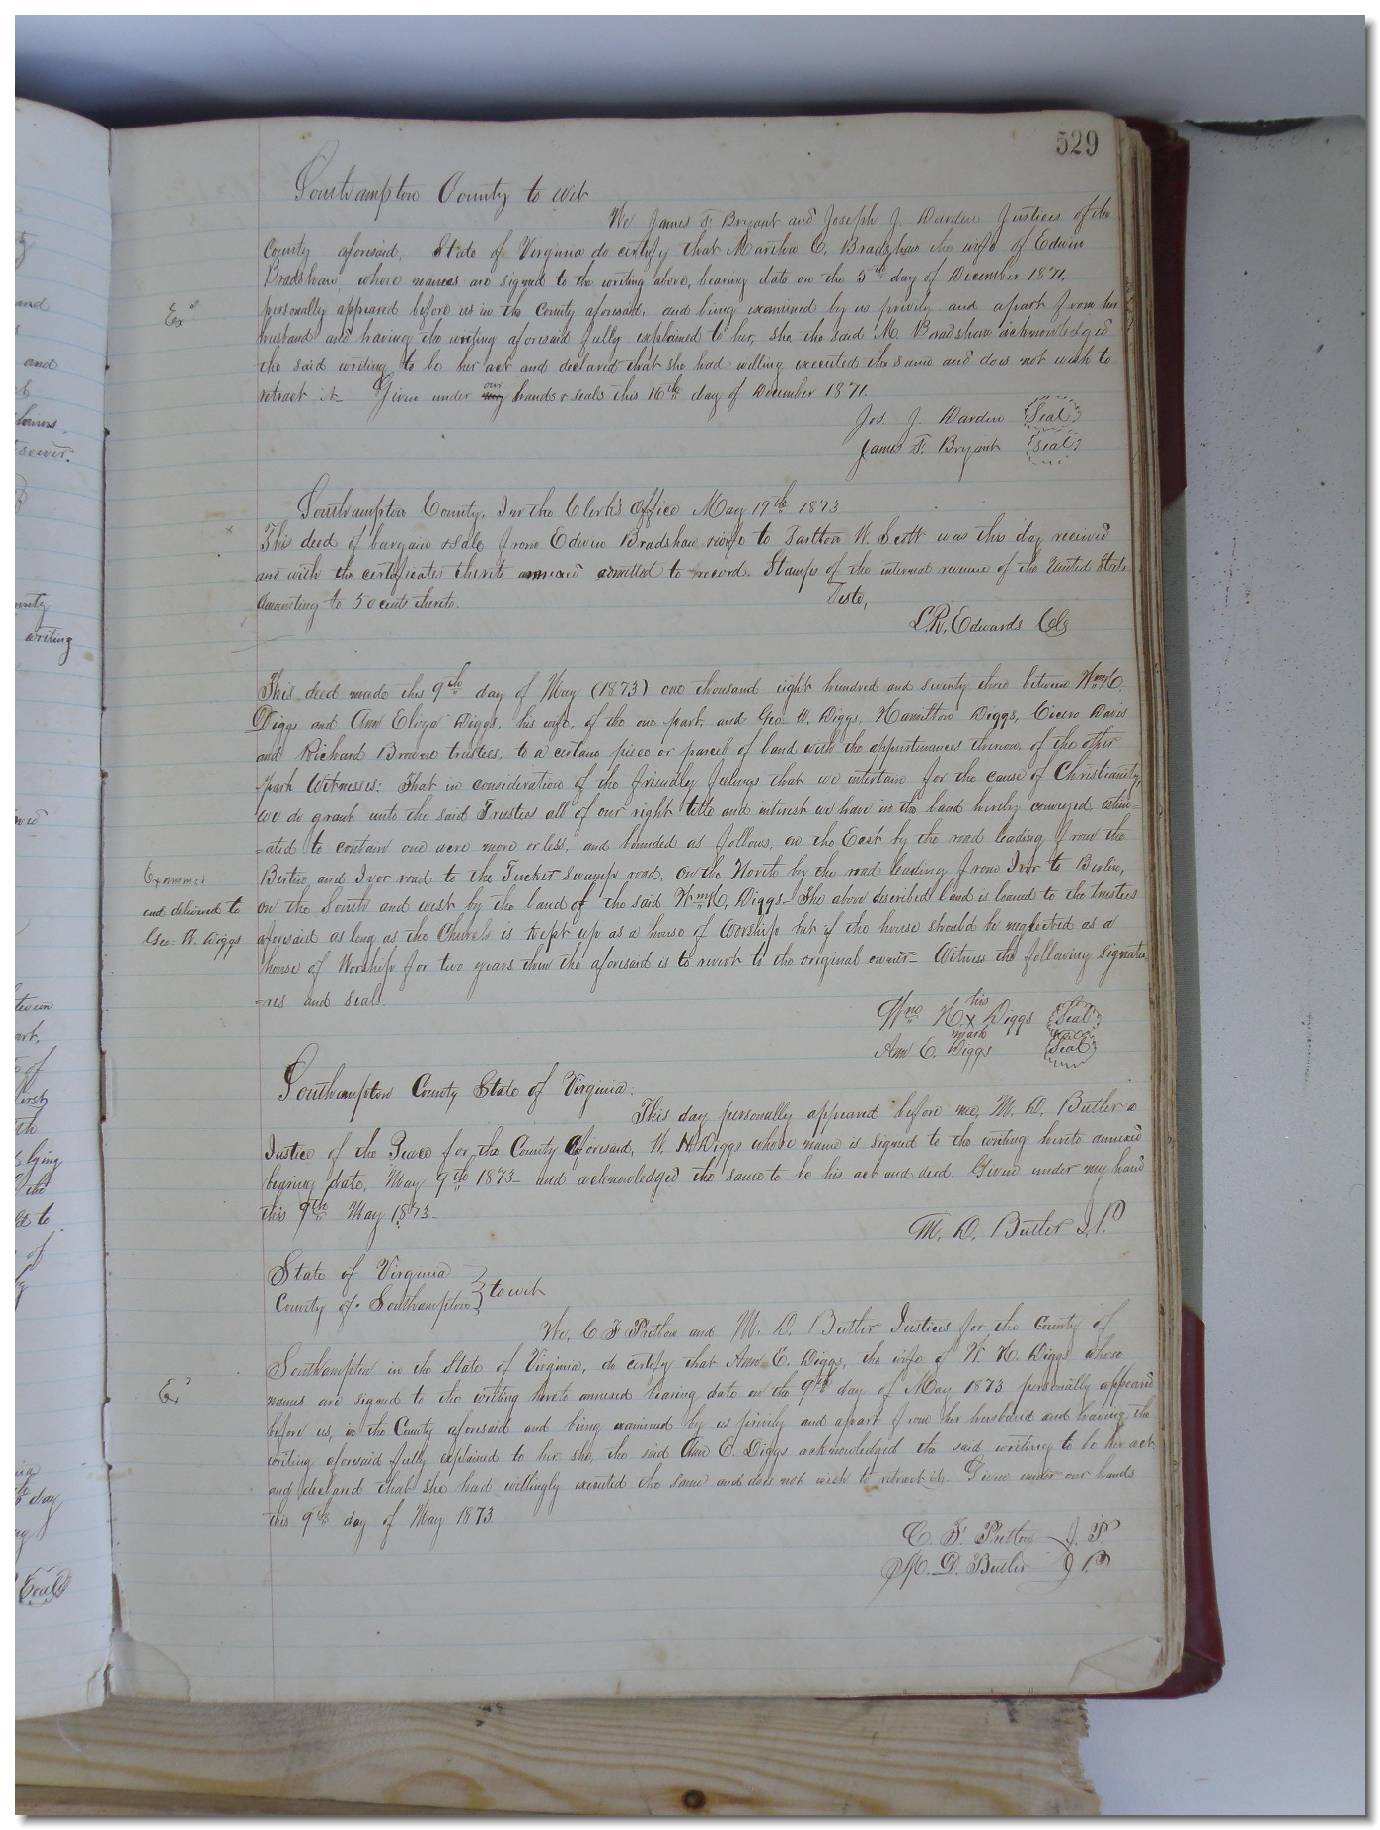 529
Southampton County to wit
We James F. Bryant and Joseph J. Darden Justices of the
County aforesaid, State of Virginia do certify that Martha C. Bradshaw the wife of Edwin
Bradshaw, whose names are signed to the writing above, bearing date on the 5th day of December 1871,
personally appeared before us in the County aforesaid, and being examined by us privily and apart from her
Exd
husband and having the writing aforesaid fully explained to her, she the said M. Bradshaw acknowledged
the said writing to be her act and declared that she had willing executed the same and does not wish to
retract it_ Given under my our hands & seals this 16th day of December 1871.
Jos. J. Darden Seal
James F. Bryant Seal
Southampton County, In the Clerk's Office May 19th 1873
This deed of bargain & sale from Edwin Bradshaw & wife to Tartton W. Scott was this day received
and with the certificates thereto annexed admitted to record. Stamps of the internal revenue of the United States
Amounting to 50 cents thereto.
Teste,
L. R. Edwards Clk
This deed made this 9th day of May (1873) one thousand eight hundred and seventy three between Wm H.
Diggs and Ann Eliza Diggs, his wife, of the one part, and Geo. W. Diggs, Hamilton Diggs, Cicero Davis
and Richard Browne trustees, to a certain piece or parcel of land with the appurtenances thereon, of the other
part Witnesses: That in consideration of the friendly feelings that we entertain for the cause of Christianity,
we do grant unto the said Trustees all of our right title and interest we have in the land hereby conveyed, estim=
=ated to contain one acre more or less, and bounded as follows, on the East by the road leading from the
Berlin and Ivor road to the Tucker Swamp road, on the North by the road leading from Ivor to Berlin,
Examined
and delivered to
Geo. W. Diggs
on the South and west by the land of the said Wm H. Diggs_ The above described land is loaned to the trustees
aforesaid as long as the Church is kept up as a house of Worship but if the house should be neglected as a
house of Worship for two years then the aforesaid is to revert to the original owner_ Witness the following signatu=
=res and seals.
Wm H. his x mark Diggs Seal
Ann E. Diggs Seal
Southampton County State of Virginia.
This day personally appeared before me, M. D. Butler a
Justice of the Peace for the County Aforesaid, W. H. Diggs whose name is signed to the writing hereto annexed
bearing date, May 9th 1873_ and acknowledged the same to be his act and deed. Given under my hand
this 9th May 1873_
M. D. Butler J.P.
State of Virginia
County of Southampton } to wit
We, C F Pretlow and M. D. Butler Justices for the County of
Southampton in the State of Virginia, do certify that Ann E. Diggs, the wife of W. H. Diggs whose
Exd
names are signed to the writing hereto annexed bearing date on the 9th day of May 1873 personally appeared
before us, in the County aforesaid and being examined by us privily and apart from her husband and having the
writing aforesaid fully explained to her, she, the said Ann E. Diggs acknowledged the said writing to be her act,
and declared that she had willingly executed the same and does not wish to retract it. Given under our hands
this 9th day of May 1873.
C. F. Pretlow J. P.
M. D. Butler J P